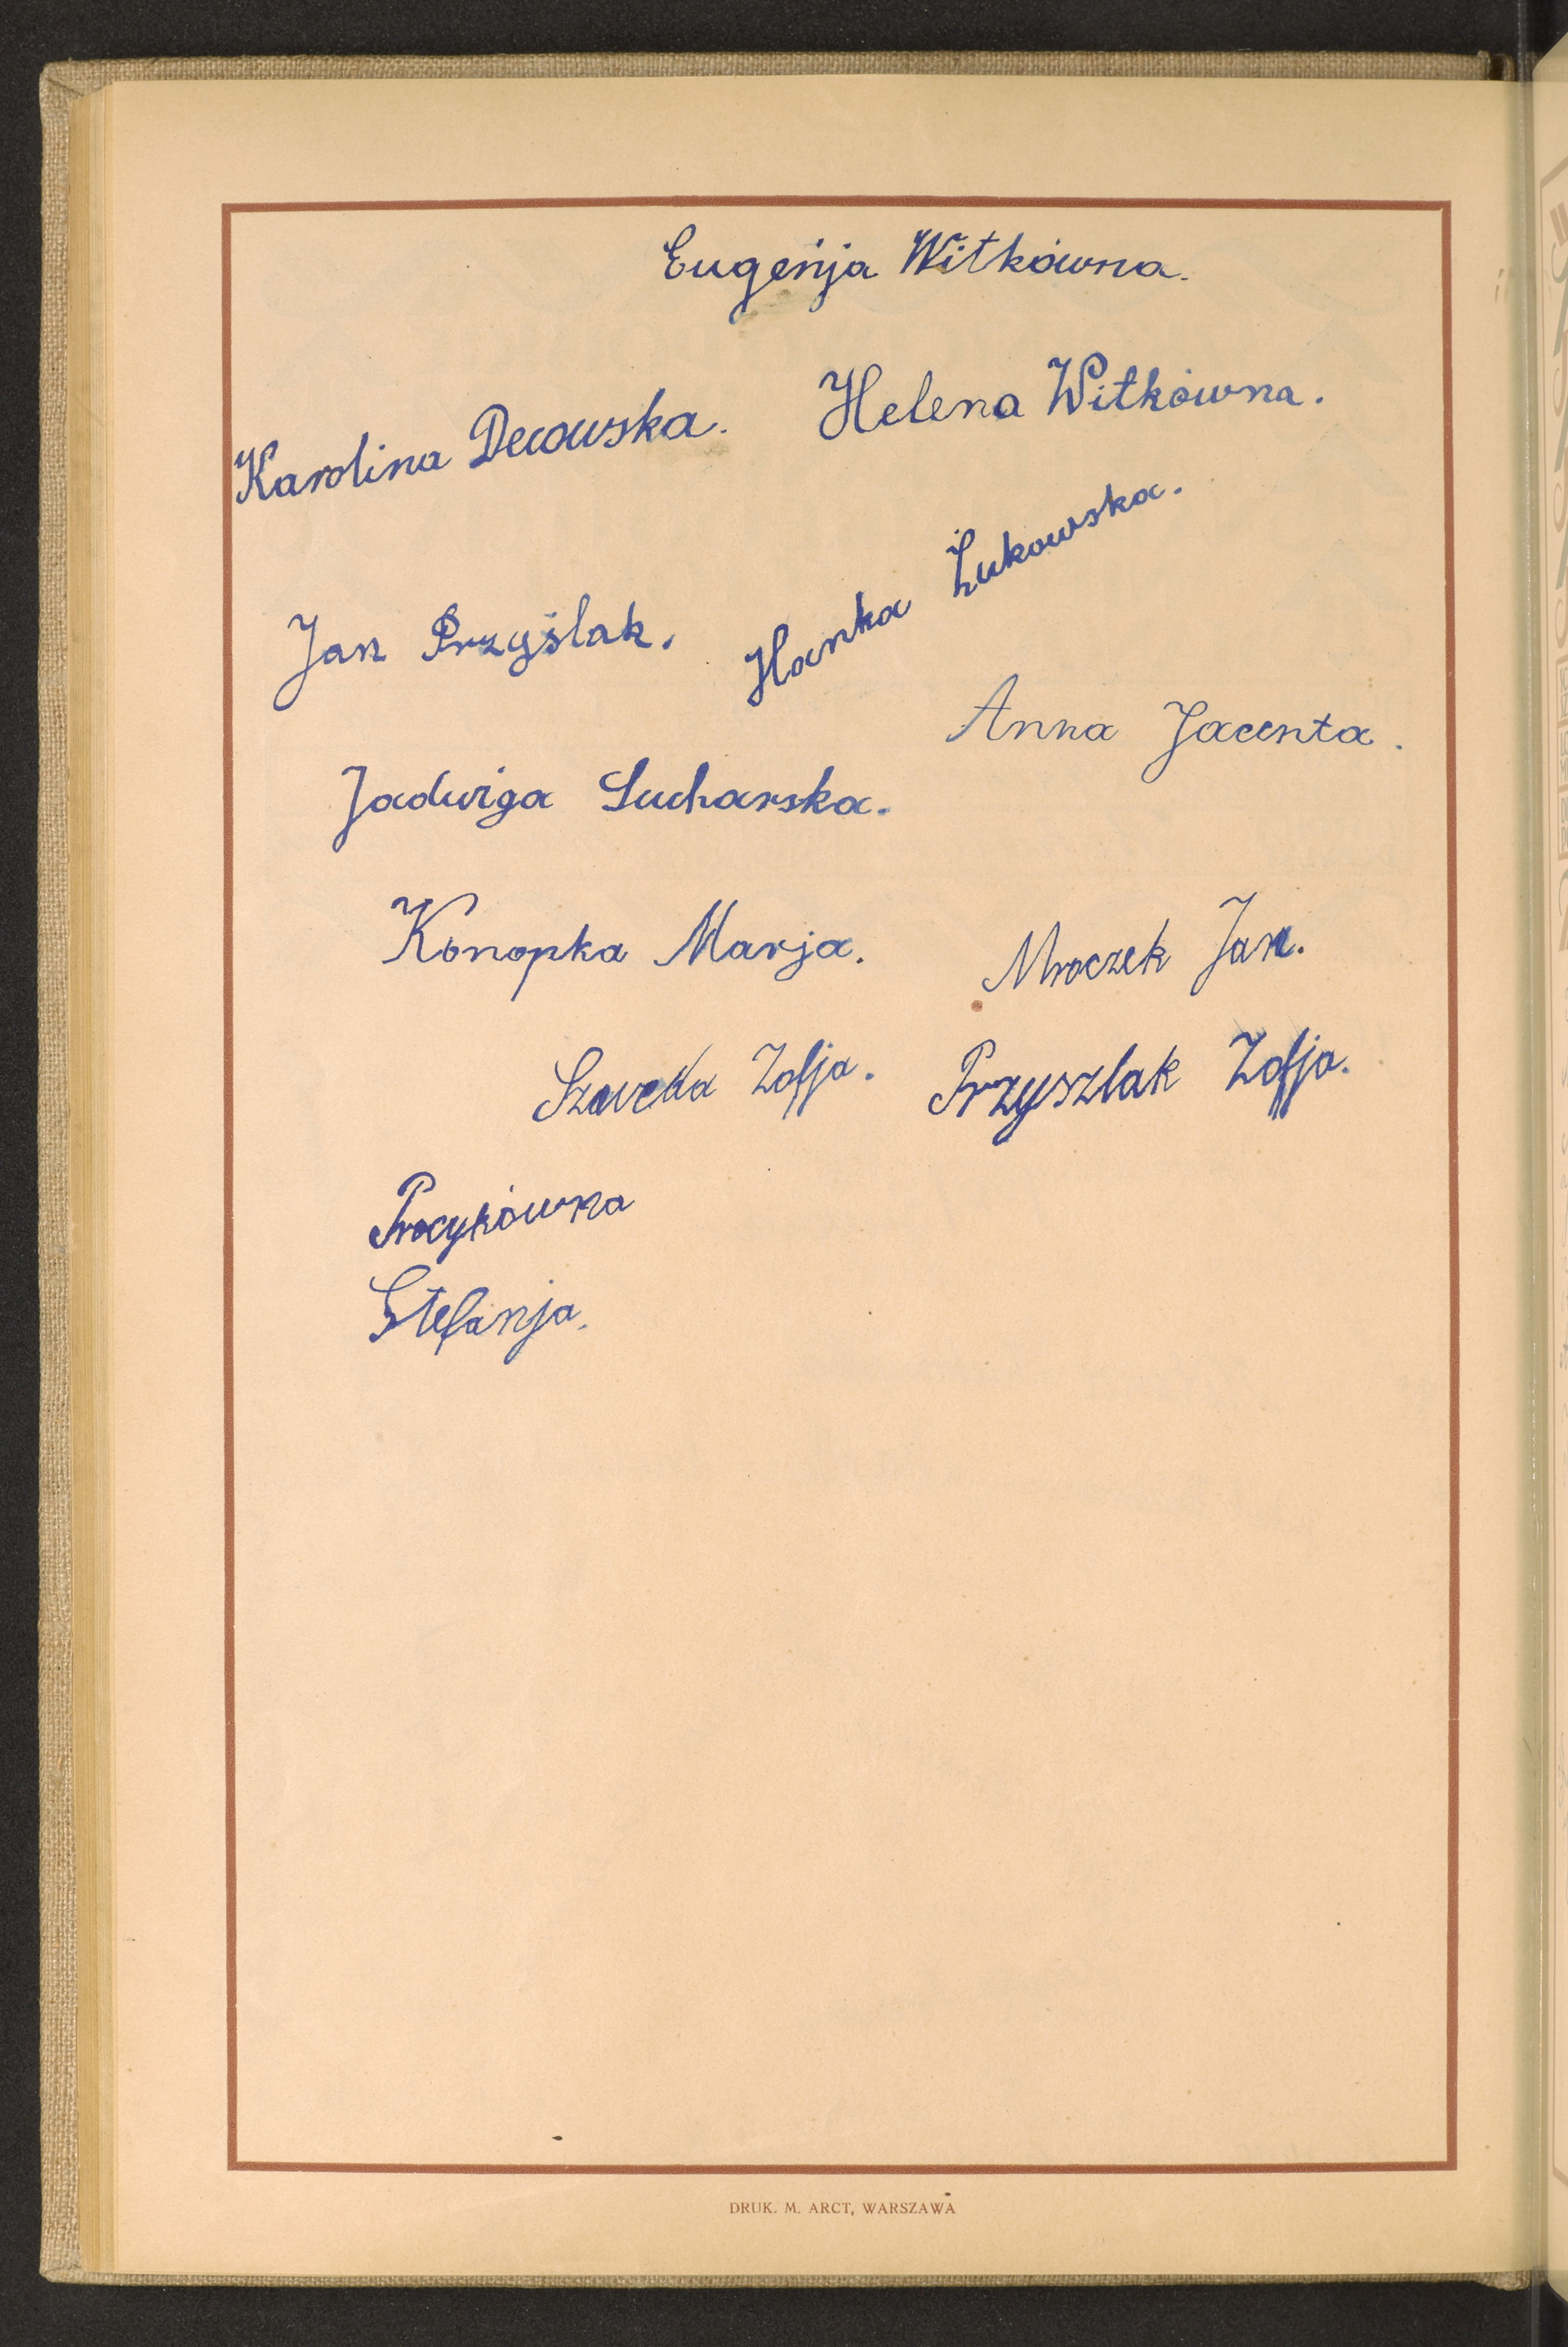 Eugenja Witkówna.
Karolina Decowska. Helena Witkówna.
Hanka Żukowska.
Jan Przyślak.
Anna Jacenta.
Jadwiga Sucharska.
Konopka Marja. Mroczek Jan.
Zofja. Przyszlak Zofja.
Procykówna
Stefanja.
DRUK. M. ARCT, WARSZAWA